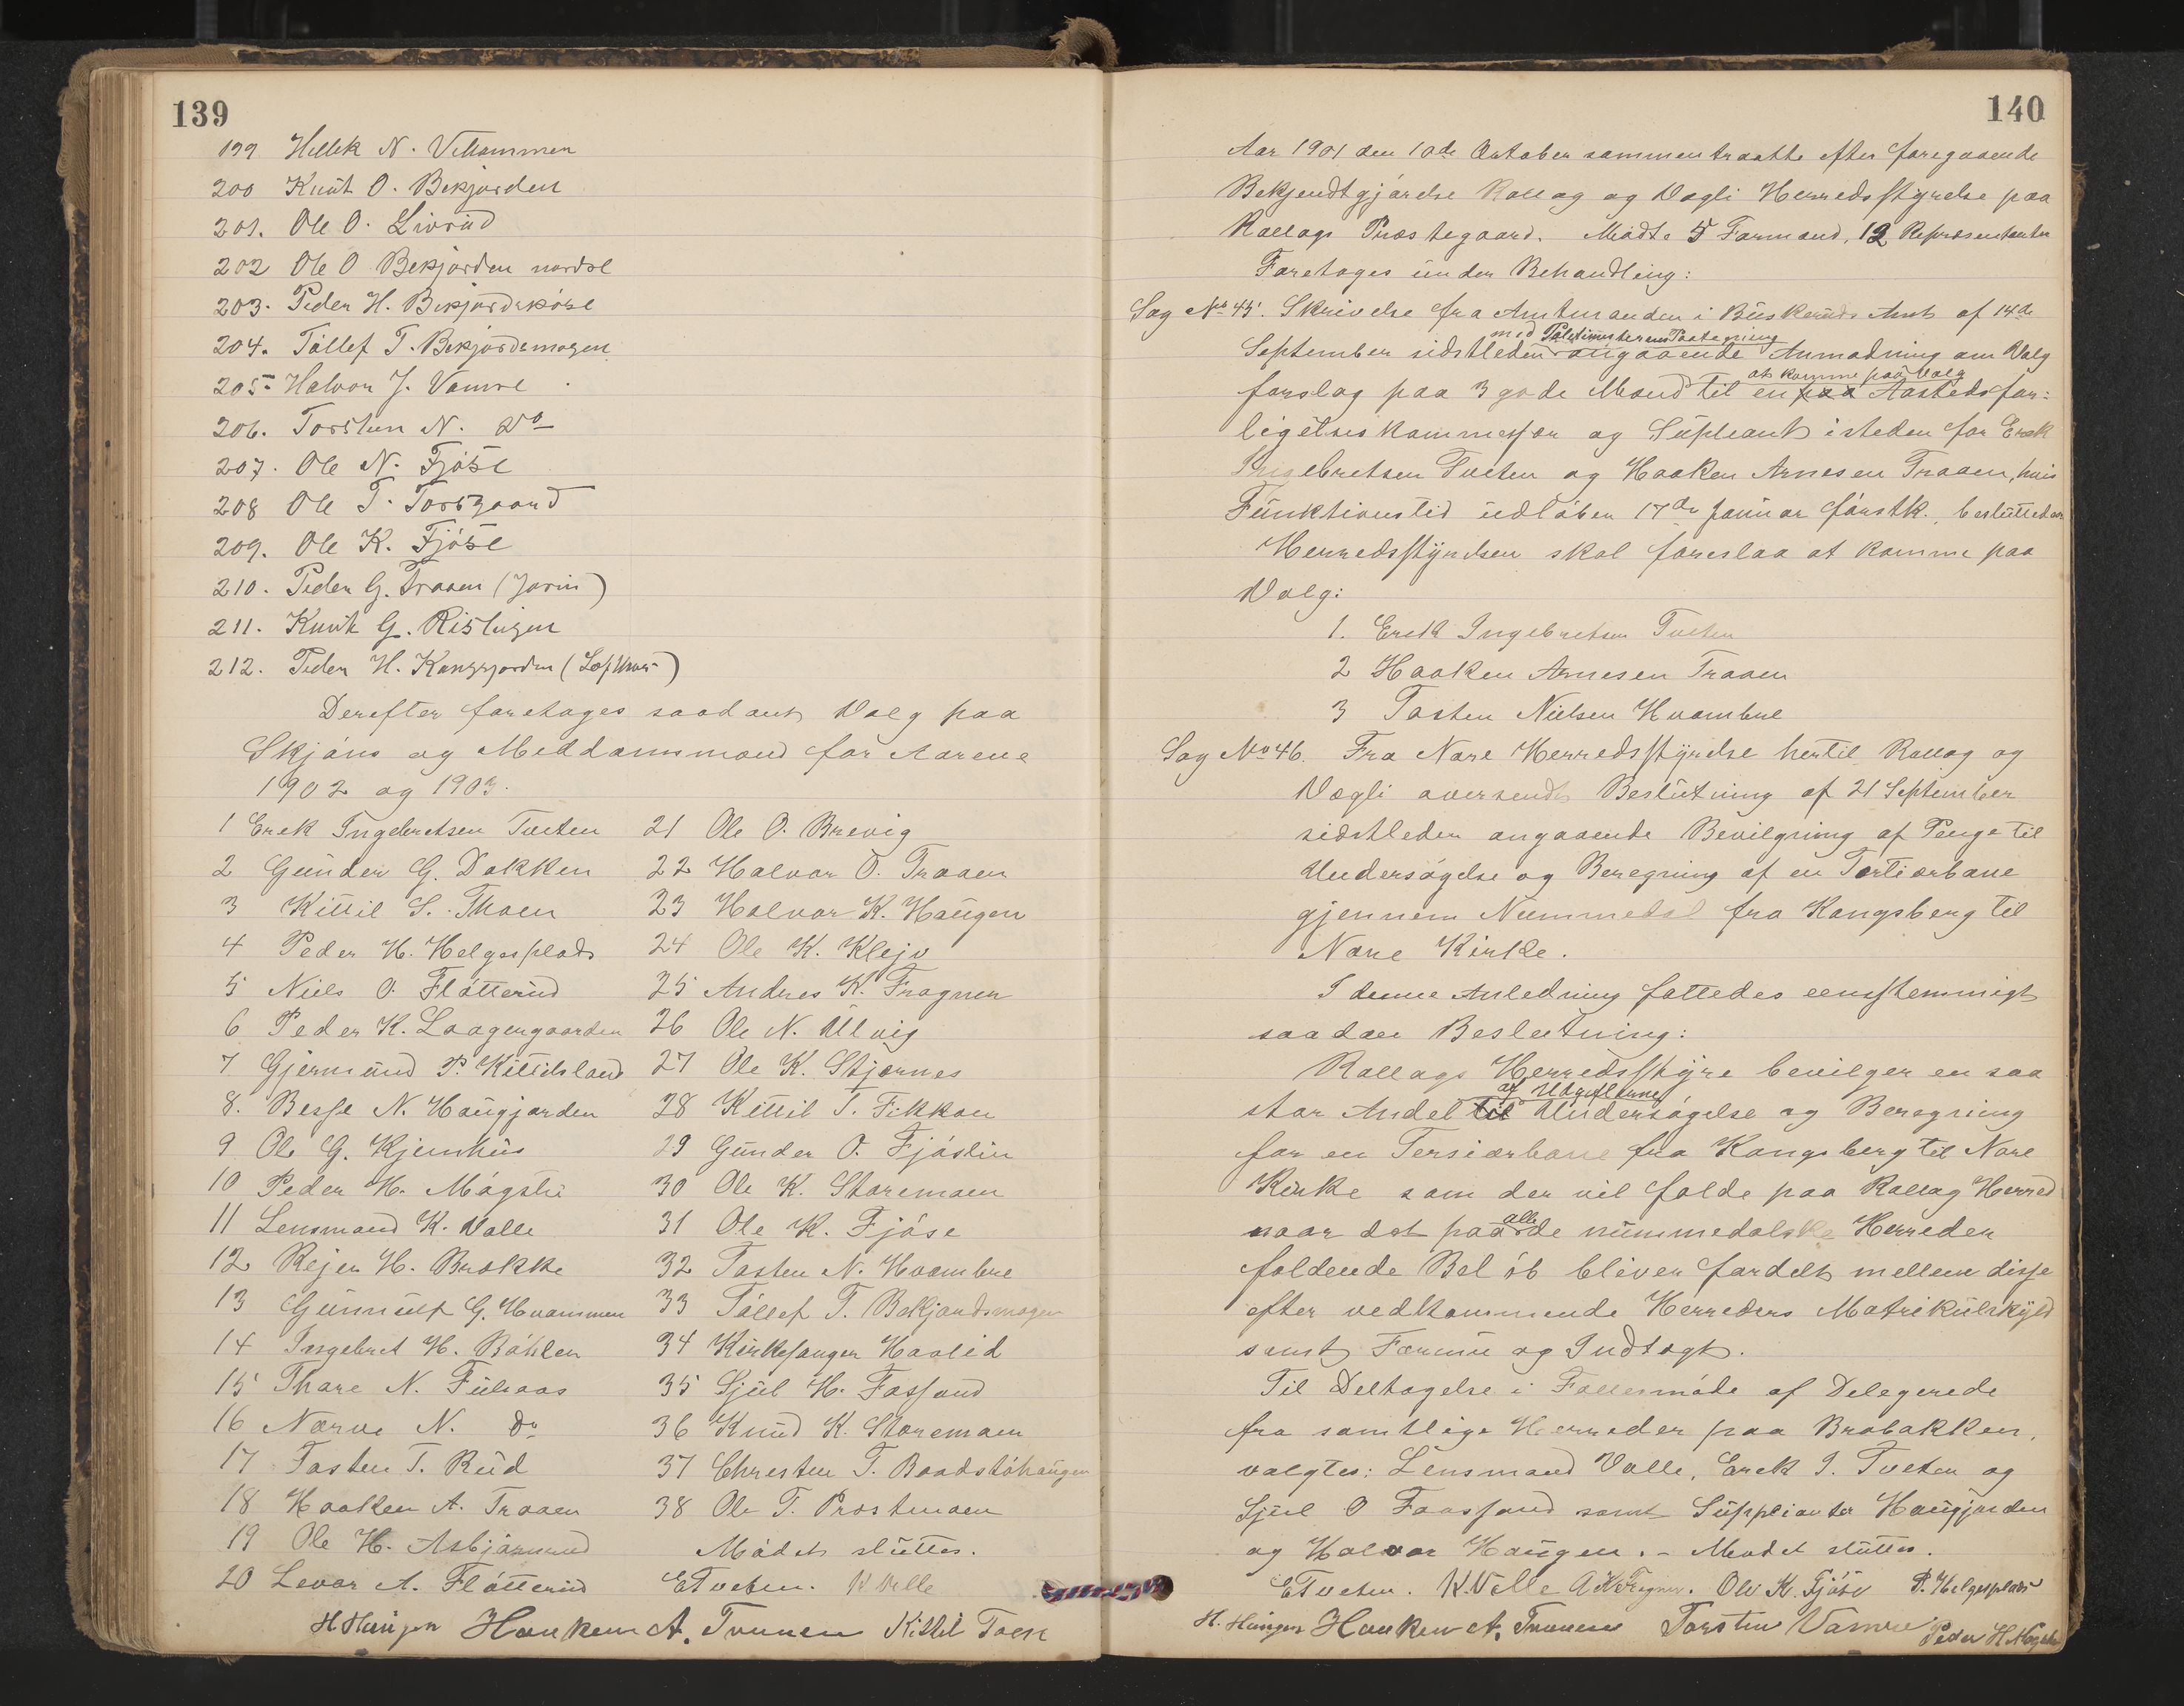 139
199 Hellek N. Villiammen
200 Knut O. Bekjorden
201. Ole O. Livrud
202 Ole O Bekjorden nordre
203. Peder H. Bekjordskóse
204. Tóllef T. Bekjordsmogen
205 Halvor J. Vamre
206. Torsten N. Do
207. Ole N. Fjóse
208 Ole T. Torsgaard
209. Ole K. Fjóse
210. Peder G. Traaen (Jorin)
211. Knut G. Risteigen
212. Peder H. Kongsjorden
Derefter foretoges saadant Valg paa
Skjóns og Meddomsmænd for Aarene
1902 og 1903.
1 Erek Ingebretsen Tveten
2 Gunder G. Dokken
3 Kittil S. Thoen
4 Peder H. Helgesplads
5 Niels O. Flótterud
6 Peder K. Laagengaarden
7 Gjermund P. Kittilsland
8. Besse N. Haugjorden
9 Ole G. Kjemhus
10 Peder H. Mógsti
11 Lensmand K. Valle
12 Rejer H. Brokke
13 Gunnulf G. Hvammen
14 Ingebret H. Bóhlen
15 Thore N. Fulsaas
16 Narve N. do
17 Tosten T. Rud
18 Haaken A. Traaen
19 Ole H. Asbjórnrud
20 Levor A. Flótterud
21 Ole O. Brevig
22 Halvor O. Traaen
23 Halvor K. Haugen
24 Ole K. Klejv
25 Andres K. Fragnen
26 Ole N. Ulvig
27 Ole K. Stjernes
28 Kittil T. Fikkan
29 Gunder O. Fjóslin
30 Ole K. Storemoen
31 Ole K. Fjóse
32 Tosten N. Hvambre
33 Tóllef T. Bekjordsmogen
34 Kirkesanger Haolid
35 Sjul H. Fossand
36 Knud K. Storemoen
37 Chresten T. Baadstóhaugen
38 Ole T. Prostmoen
Módet sluttes.
ETveten. K Valle
H Haugen Haaken A. Traaen Kittil Toen
140
Aar 1901 den 10de October sammentraatte efter foregaaende
Bekjendtgjórelse Rollag og Vegli Herredsstyrelse paa
Rollags Præstegaard. Mødte 5 Formænd, 12 Repræsentanter
Foretoges under Behandling:
Sag No 45. Skrivelse fra Amtmanden i Buskeruds Amt af 14de
med Politimesterens Paategning
September sidstleden angaaende Anmodning om Valg
at komme paa Valg
forslag paa 3 gode Mænd til en paa Aastedsfor=
ligelseskommessær og Supleant isteden for Erek
Ingebretsen Tveten og Haaken Arnesen Traaen, hvis
Funktionstid udlóber 17de Januar fórstk., besluttedes
Herredsstyrelsen skal foreslaa at komme paa
Valg:
1. Erek Ingebretsen Tveten
2 Haaken Arnesen Traaen
3 Tosten Nielsen Hvambre
Sag No 46. Fra Nore Herredsstyrelse hertil Rollag og
Vegli oversendt Beslutning af 21 September
sidstleden angaaende Bevilgning af Penge til
Undersógelse og Beregning af en Tertiærbane
gjennem Nummedal fra Kongsberg til
Nore Kirke.
I denne Anledning fattedes eenstemmigt
saadan Beslutning:
Rollags Herredsstyre bevilger en saa
af Udgifterne
stor Andel til Undersógelse og Beregning
for en Tersiærbane fra Kongsberg til Nore
Kirke som der vil falde paa Rollag Herred
alle
naar det paa de nummedalske Herreder
faldende Beløb bliver fordelt mellem disse
efter vedkommende Herreders Matrikulskyld
samt Formue og Indtægt.
Til Deltagelse i Fællesmóde af Delegerede
fra samtlige Herreder paa Brobakken,
valgtes: Lensmand Valle, Erek I. Tveten og
Sjul O Faassand samt Supplianter Haugjorden
og Halvor Haugen. - Mødet sluttes.
ETveten. K. Valle A K Fragnen. Ole K. Fjóse P. Helgesplads
H. Haugen Haaken A. Traaen Torsten Vamre Peder H Mógsti